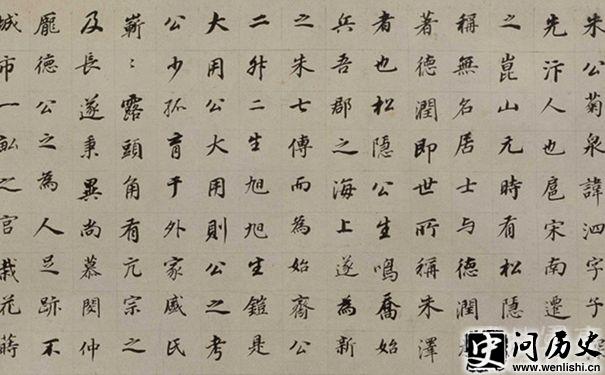 朱公菊泉諱泗字子
先汴人也扈宋南遷
之崑山元時有松隱
稱無名居士与德潤
著德潤即世所稱朱澤
者也松隱公生鳴喬始
兵吾郡之海上遂為新
之朱七傳而為始齋公
二外二生旭旭生鎧是
大用公大用則公之考
公少孤育于外家氏
嶄〻露頭角有亢宗之
及長遂秉異尚慕閔仲
龐德公之為人足跡不
城市一畝之宮栽花蒔
史问历史
www.wenlishi.cn